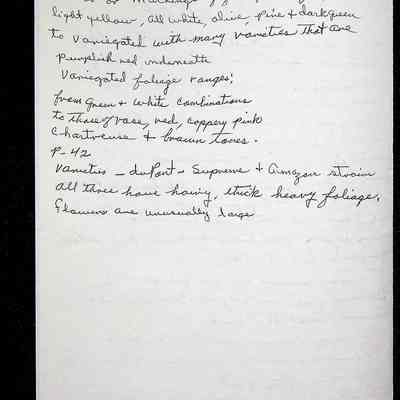 or markings
light yellow, all white, olive, pine & dark green
to variegated with many varieties that are
purplish red underneath
Variegated foliage ranges:
from green & white combinations
to those of rose, red, coppery pink
chartreuse & brown tones.
P-42
Varieties - duPont - Supreme & Amazon strain
all three have hairy, thick heavy foliage.
flowers are unusually large